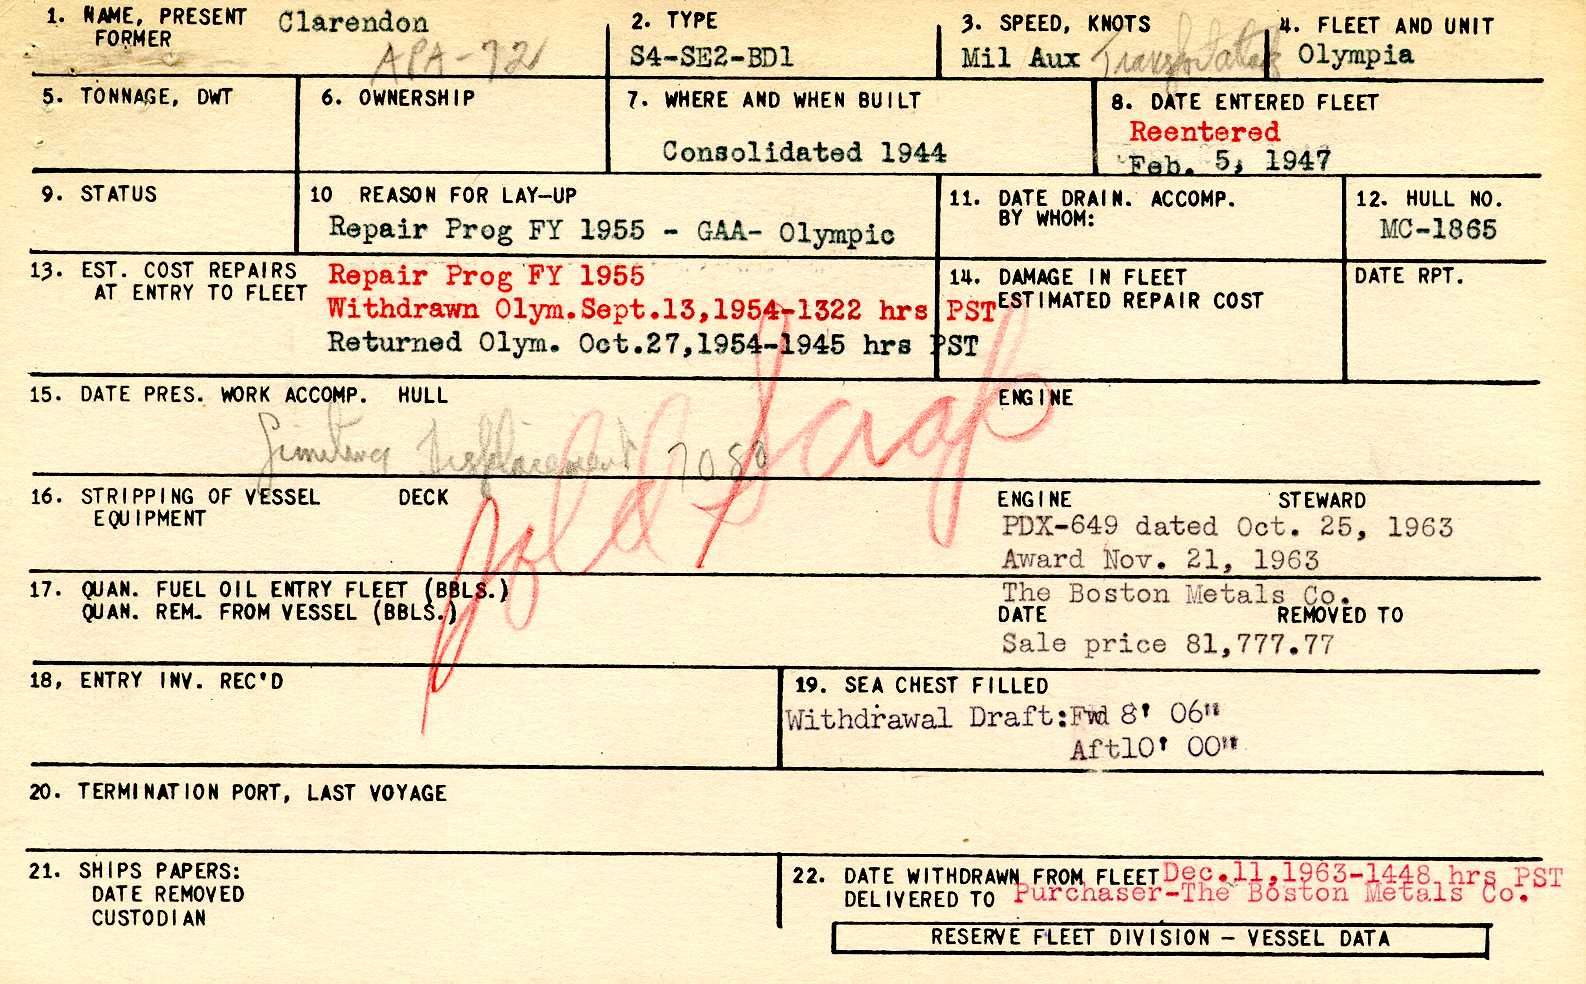 1. NAME, PRESENT Clarendon
FORMER APA-72
2. TYPE
S4-SE2-BD1
3. SPEED, KNOTS
Mil Aux
4. FLEET AND UNIT
Olympia
5. TONNAGE, DWT
6. OWNERSHIP
7. WHERE AND WHEN BUILT
Consolidated 1944
8. DATE ENTERED FLEET
Reentered
Feb. 5, 1947
9. STATUS
10 REASON FOR LAY-UP
Repair Prog FY 1955 - GAA- Olympic
11. DATE DRAIN. ACCOMP.
BY WHOM:
12. HULL NO.
MC-1865
13. EST. COST REPAIRS
AT ENTRY TO FLEET
Repair Prog FY 1955
Withdrawn Olym.Sept.13,1954-1322 hrs PST
Returned Olym. Oct.27,1954-1945 hrs PST
14. DAMAGE IN FLEET
ESTIMATED REPAIR COST
DATE RPT.
15. DATE PRES. WORK ACCOMP. HULL ENGINE
Limiting Displacement 7080
Sold Scrap
16. STRIPPING OF VESSEL DECK ENGINE STEWARD
EQUIPMENT
PDX-649 dated Oct. 25, 1963
Award Nov. 21, 1963
The Boston Metals Co.
17. QUAN. FUEL OIL ENTRY FLEET (BBLS.)
QUAN. REM. FROM VESSEL (BBLS.) DATE REMOVED TO
Sale price 81,777.77
18, ENTRY INV. REC'D
19. SEA CHEST FILLED
Withdrawal Draft:Fwd 8' 06"
Aft10' 00"
20. TERMINATION PORT, LAST VOYAGE
21. SHIPS PAPERS:
DATE REMOVED
CUSTODIAN
22. DATE WITHDRAWN FROM FLEET Dec.11,1963-1448 hrs PST
DELIVERED TO Purchaser-The Boston Metals Co.
RESERVE FLEET DIVISION - VESSEL DATA